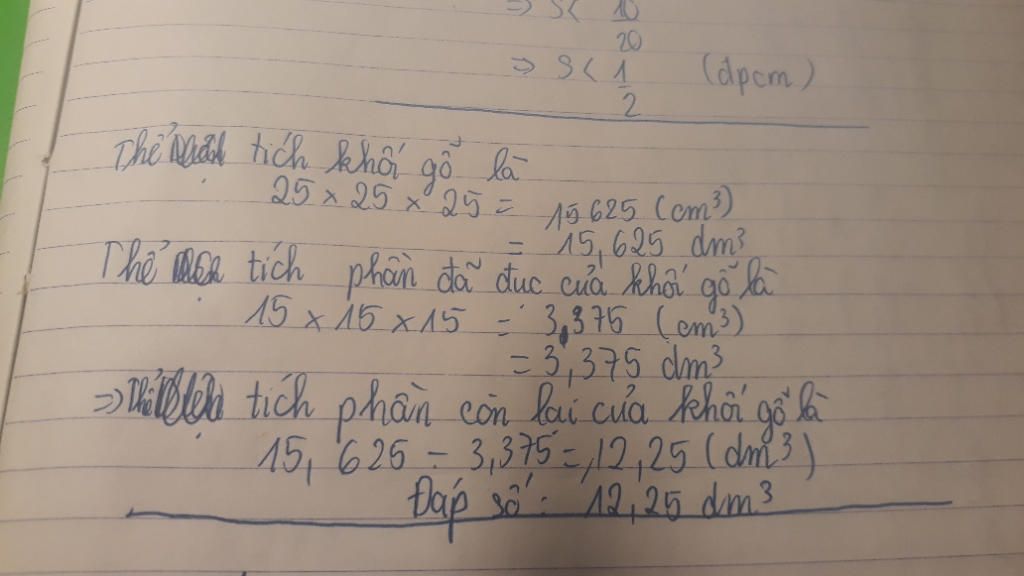 => S < 10/20
=> S < 1/2 (đpcm)
Thể tích khối gỗ là
25 × 25 × 25 = 15625 (cm³)
= 15,625 dm³
Thể tích phần đã đục của khối gỗ là
15 × 15 × 15 = 3,375 (cm³)
= 3,375 dm³
=> Thể tích phần còn lại của khối gỗ là
15,625 - 3,375 = 12,25 (dm³)
Đáp số: 12,25 dm³